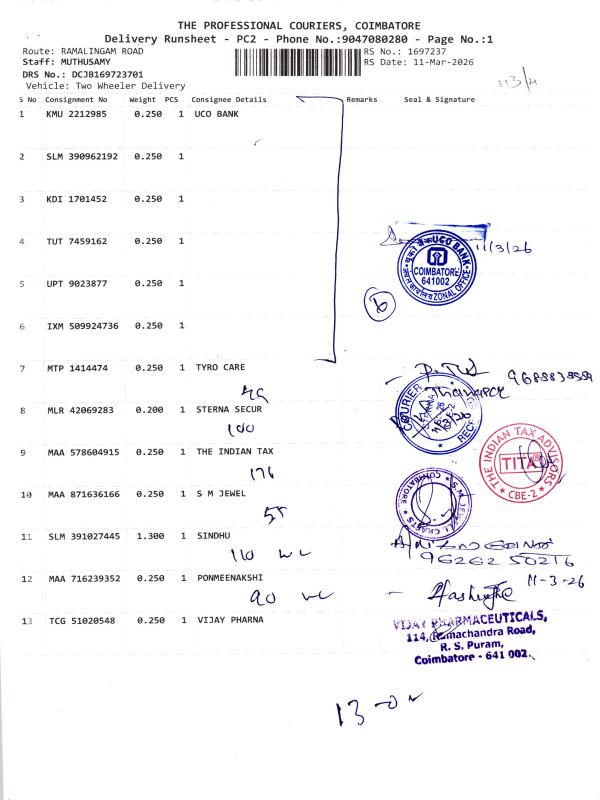 THE PROFESSIONAL COURIERS, COIMBATORE
Delivery Runsheet - PC2 - Phone No.:9047080280 - Page No.:1
Route: RAMALINGAM ROAD
RS No.: 1697237
Staff: MUTHUSAMY
RS Date: 11-Mar-2026
DRS No.: DCJB169723701
Vehicle: Two Wheeler Delivery
S No Consignment No Weight PCS Consignee Details Remarks Seal & Signature
1 KMU 2212985 0.250 1 UCO BANK
2 SLM 390962192 0.250 1
3 KDI 1701452 0.250 1
4 TUT 7459162 0.250 1
11/3/26
UCO BANK
COIMBATORE
641002
ZONAL OFFICE
5 UPT 9023877 0.250 1
6
6 IXM 509924736 0.250 1
7 MTP 1414474 0.250 1 TYRO CARE
COURIER
8 MLR 42069283 0.200 1 STERNA SECUR
100
9 MAA 578604915 0.250 1 THE INDIAN TAX
THE INDIAN TAX ADVISORS
TITA
CBE-2
176
10 MAA 871636166 0.250 1 S M JEWEL
COIMBATORE
11 SLM 391027445 1.300 1 SINDHU
110
96262 50216
12 MAA 716239352 0.250 1 PONMEENAKSHI
11-3-26
90
13 TCG 51020548 0.250 1 VIJAY PHARNA
VIJAY PHARMACEUTICALS,
114, Ramachandra Road,
R. S. Puram,
Coimbatore - 641 002.
13